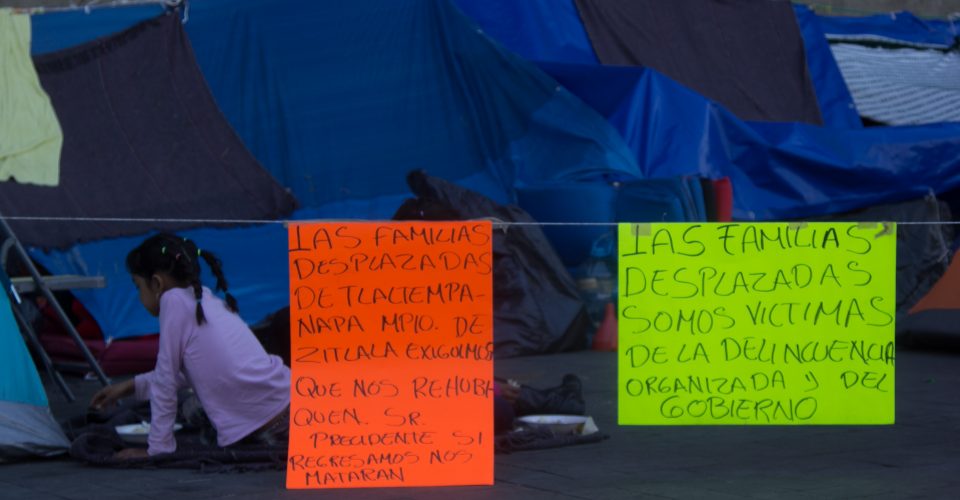 LAS FAMILIAS
DESPLAZADAS
DE TLALTEMPA-
NAPA MPIO. DE
ZITLALA EXIGOLMOS
QUE NOS REHUBI
QUEN. SR.
PRECIDENTE SI
REGRESAMOS NOS
MATARAN
LAS FAMILIAS
DESPLAZADAS
SOMOS VICTIMAS
DE LA DELINCUENCIA
ORGANIZADA Y DEL
GOBIERNO